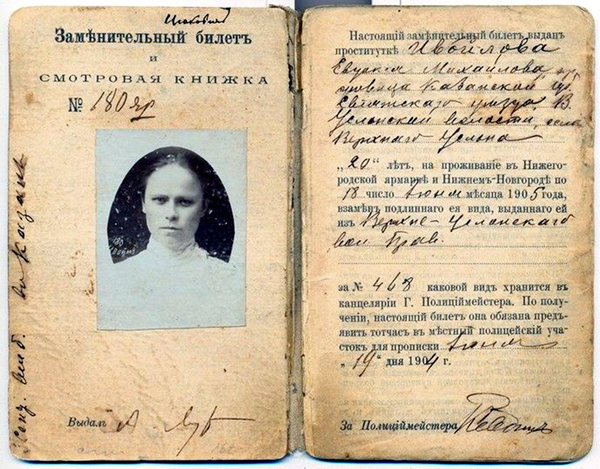 Замѣнительный билетъ
и
СМОТРОВАЯ КНИЖКА
№ 180 яр
Выдалъ
Настоящій замѣнительный билетъ выданъ
проституткѣ
Евдокія Михайлова
Казанской губ.
уѣзда, В.
Услонской волости, села
Верхнаго Услона
„20“ лѣтъ, на проживаніе въ Нижего-
родской ярмаркѣ и Нижнемъ-Новгородѣ по
18 число Іюня мѣсяца 1905 года,
взамѣнъ подлиннаго ея вида, выданнаго ей
изъ Верхне-Услонскаго
вол Прав.
за № 468 каковой видъ хранится въ
канцеляріи Г. Полиціймейстера. По полу-
ченіи, настоящій билетъ она обязана предъ-
явить тотчасъ въ мѣстный полицейскій уча-
стокъ для прописки Іюня
„19“ дня 1904 г.
За Полиціймейстера